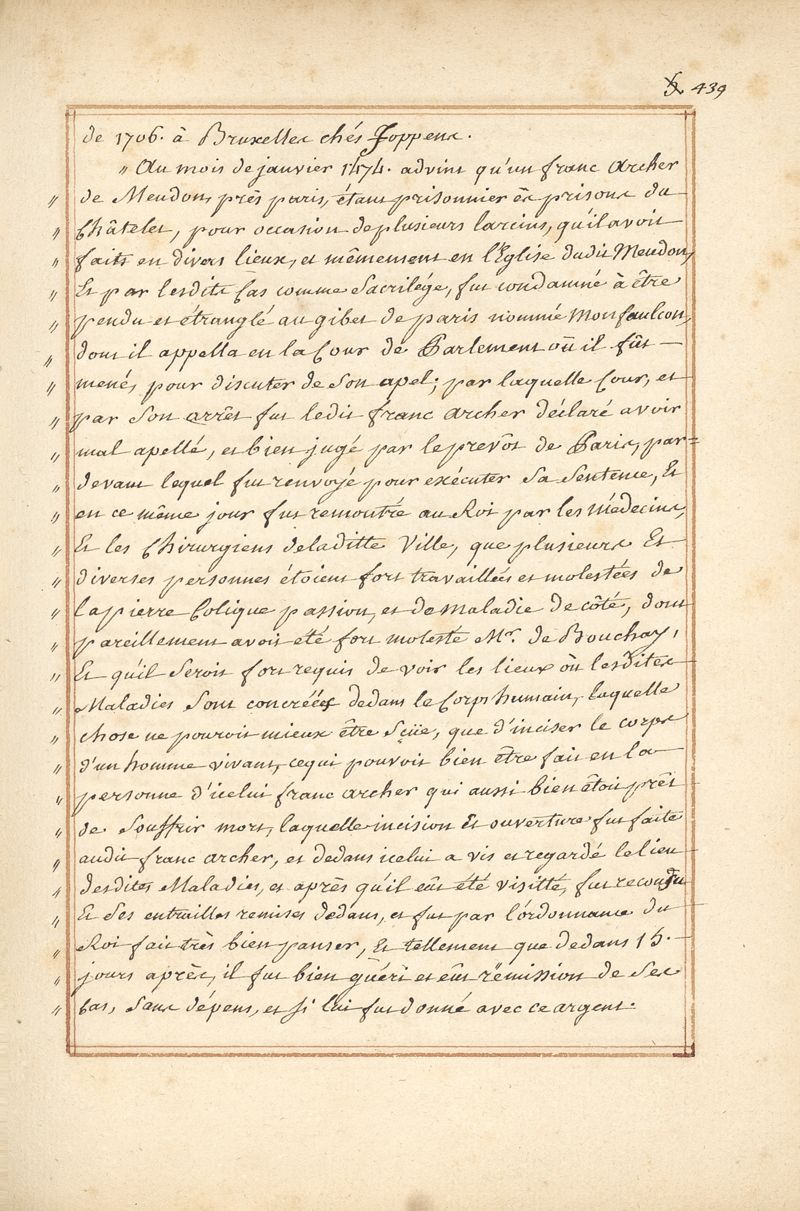 439
de 1706. à Bruxelles chés Foppens.
" Au mois de janvier 1474. advint qu'un franc Archer
" de Meudon, près paris, étant prisonnier ès prisons du
" Châtelet, pour occasion de plusieurs larcins, qu'il avoit
" faits en divers lieux, et mêmement en l'Eglise dudit Meudon,
" Et par lesdits Cas comme Sacrilége, fut condamné à être
" pendu et étranglé au gibet de paris nommé Monfaulcon,
" dont il appella en la Cour de Parlement où il fût
" menés pour discuter de Son apel; par laquelle Cour, et
" par Son arrêt fut ledit franc archer déclaré avoir
" mal apellé, et bien jugé par le prevôt de Paris, par=
" devant lequel fut renvoyé pour exécuter Sa Sentence, Et
" en ce même jour fut remontré au Roi par les Médecins,
" Et les Chirurgiens de laditte Ville, que plusieurs Et
" diverses personnes étoient fort travaillées et molestées de
" la pierre Colique passion, et de Maladie de côté, dont
" pareillement avoit eté fort molesté Mr. de Bouchay,
" Et qu'il Seroit fort requis de voir les lieux où lesdites
" Maladies Sont concréées dedans le Corps humain, laquelle
" chose ne pouroit mieux être Sçüe, que d'inciser le corps
" d'un homme vivant, ce qui pouvoit bien être fait en la
" personne d'icelui franc archer qui aussi bien étoit prêt
" de Souffrir mort, laquelle incision Et ouverture fut faite
" audit franc archer, et dedans icelui a vis et regardé le lieu
" desdites Maladies, et après qu'il eût été visitté, fut recoudu
" Et Ses entrailles remises dedans, et fut par l'ordonnance du
" Roi fait très bien panser, Et tellement que dedans 15.
" jours après, il fut bien guéri et eût rémission de Ses
" Cas, Sans dépens, et Si lui fut donné avec ce argent.